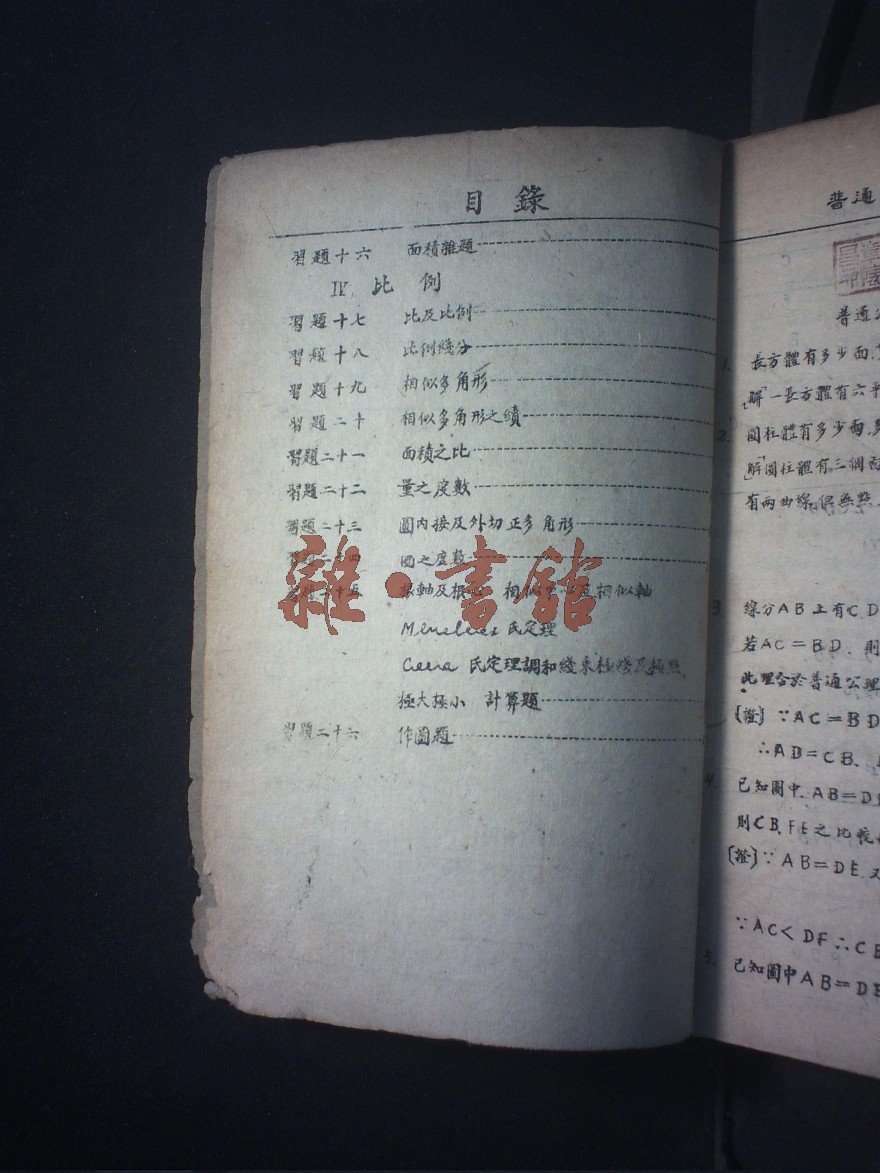 目錄
習題十六 面積雜題
Ⅳ 比例
習題十七 比及比例
習題十八 比例綫分
習題十九 相似多角形
習題二十 相似多角形之續
習題二十一 面積之比
習題二十二 量之度數
習題二十三 圓內接及外切正多角形
習題二十四 圓之度數
根軸及根心 相似 相似軸
氏定理
氏定理調和綫束極綫及極點
極大極小 計算題
習題二十六 作圖題
雜·書館
普通
普通
1. 長方體有多少面
解 一長方體有六平
2. 圓柱體有多少面
解 圓柱體有三個面
有兩曲線,俱無點
3. 線分AB上有C.D
若AC=BD. 則
此理合於普通公理
〔證〕∵AC=BD
∴AD=CB.
4. 已知圖中.AB=DE
則CB,FE之比較
〔證〕∵AB=DE.又
∵AC<DF∴CB
5. 已知圖中AB=DE